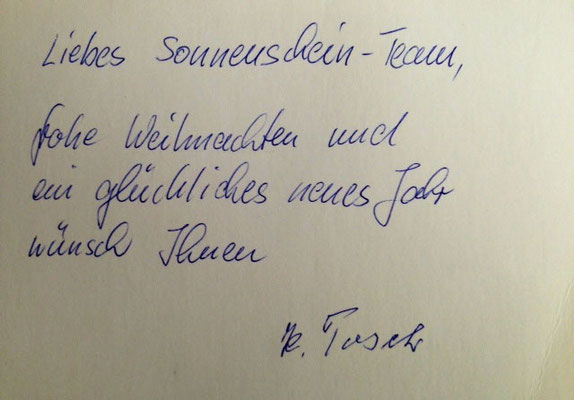 Liebes Sonnenschein-Team,
frohe Weihnachten und
ein glückliches neues Jahr
wünsch Ihnen
K.